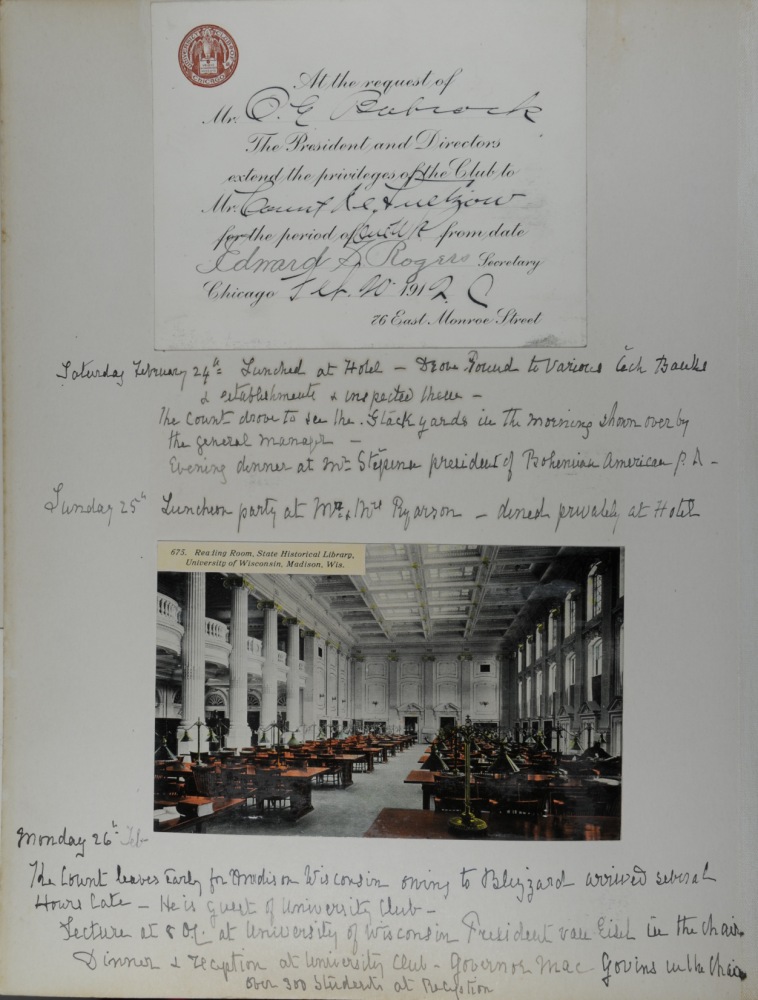 UNIVERSITY CLUB OF CHICAGO
At the request of
Mr. O. E. Babcock
The President and Directors
extend the privileges of the Club to
Mr. Count de Luetzow
for the period of from date
Edward S. Rogers Secretary
Chicago Feb. 20 1912
76 East Monroe Street
Saturday February 24th Lunched at Hotel – Drove Round to Various Cech Banks
& establishments & inspected these –
The Count drove to see the Stock yards in the morning shown over by
the general manager –
Evening dinner at Mr president of Bohemian American
Sunday 25th Luncheon party at Mr & Mrs Ryarson – dined privately at Hotel
675. Reading Room, State Historical Library,
University of Wisconsin, Madison, Wis.
Monday 26th Feb
The Count leaves Early for Madison Wisconsin owing to Blizzard arrived several
Hours Late – He is guest of University Club –
Lecture at 8 at University of Wisconsin President van in the chair
Dinner & reception at University Club – Governor Mac Govins in the Chair
over 300 Students at Reception